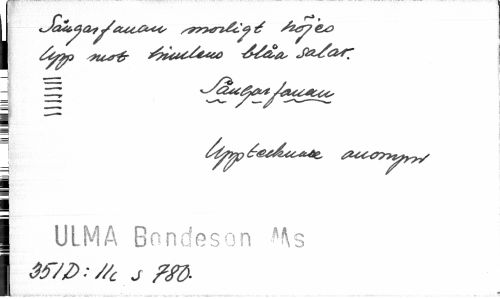 Sångarfanan modigt höjes
Upp mot himlens blåa salar.
Sångarfanan
Upptecknare anonym
ULMA Bondeson Ms
351D: 11c s 780.